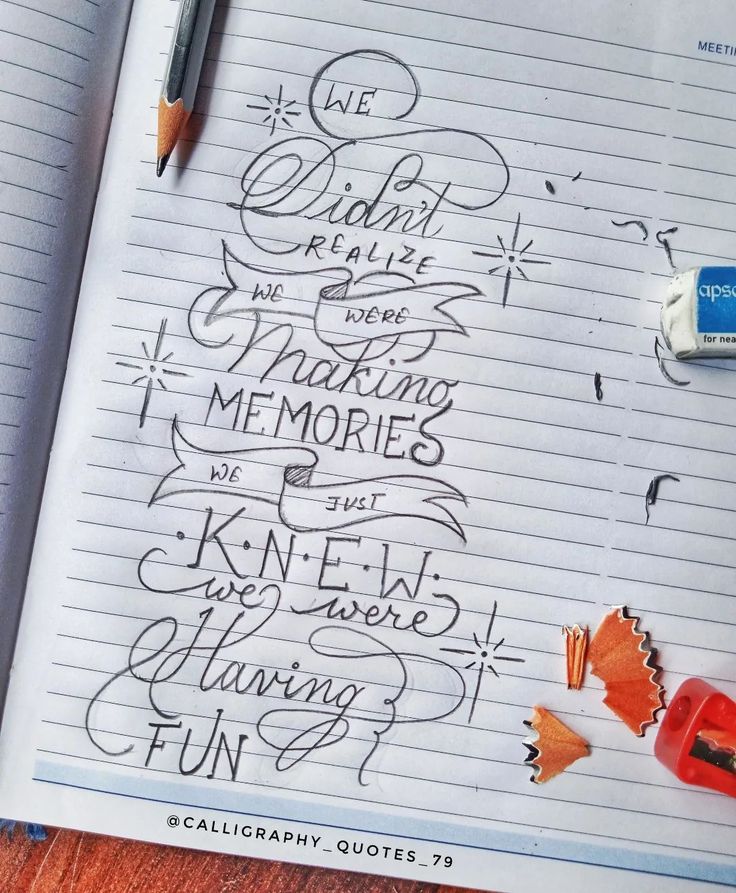 MEETIN
WE
Didn't
REALIZE
WE WERE
Making
MEMORIES
WE JUST
K.N.E.W.
we were
Having
FUN
apsa
for nea
@CALLIGRAPHY_QUOTES_79